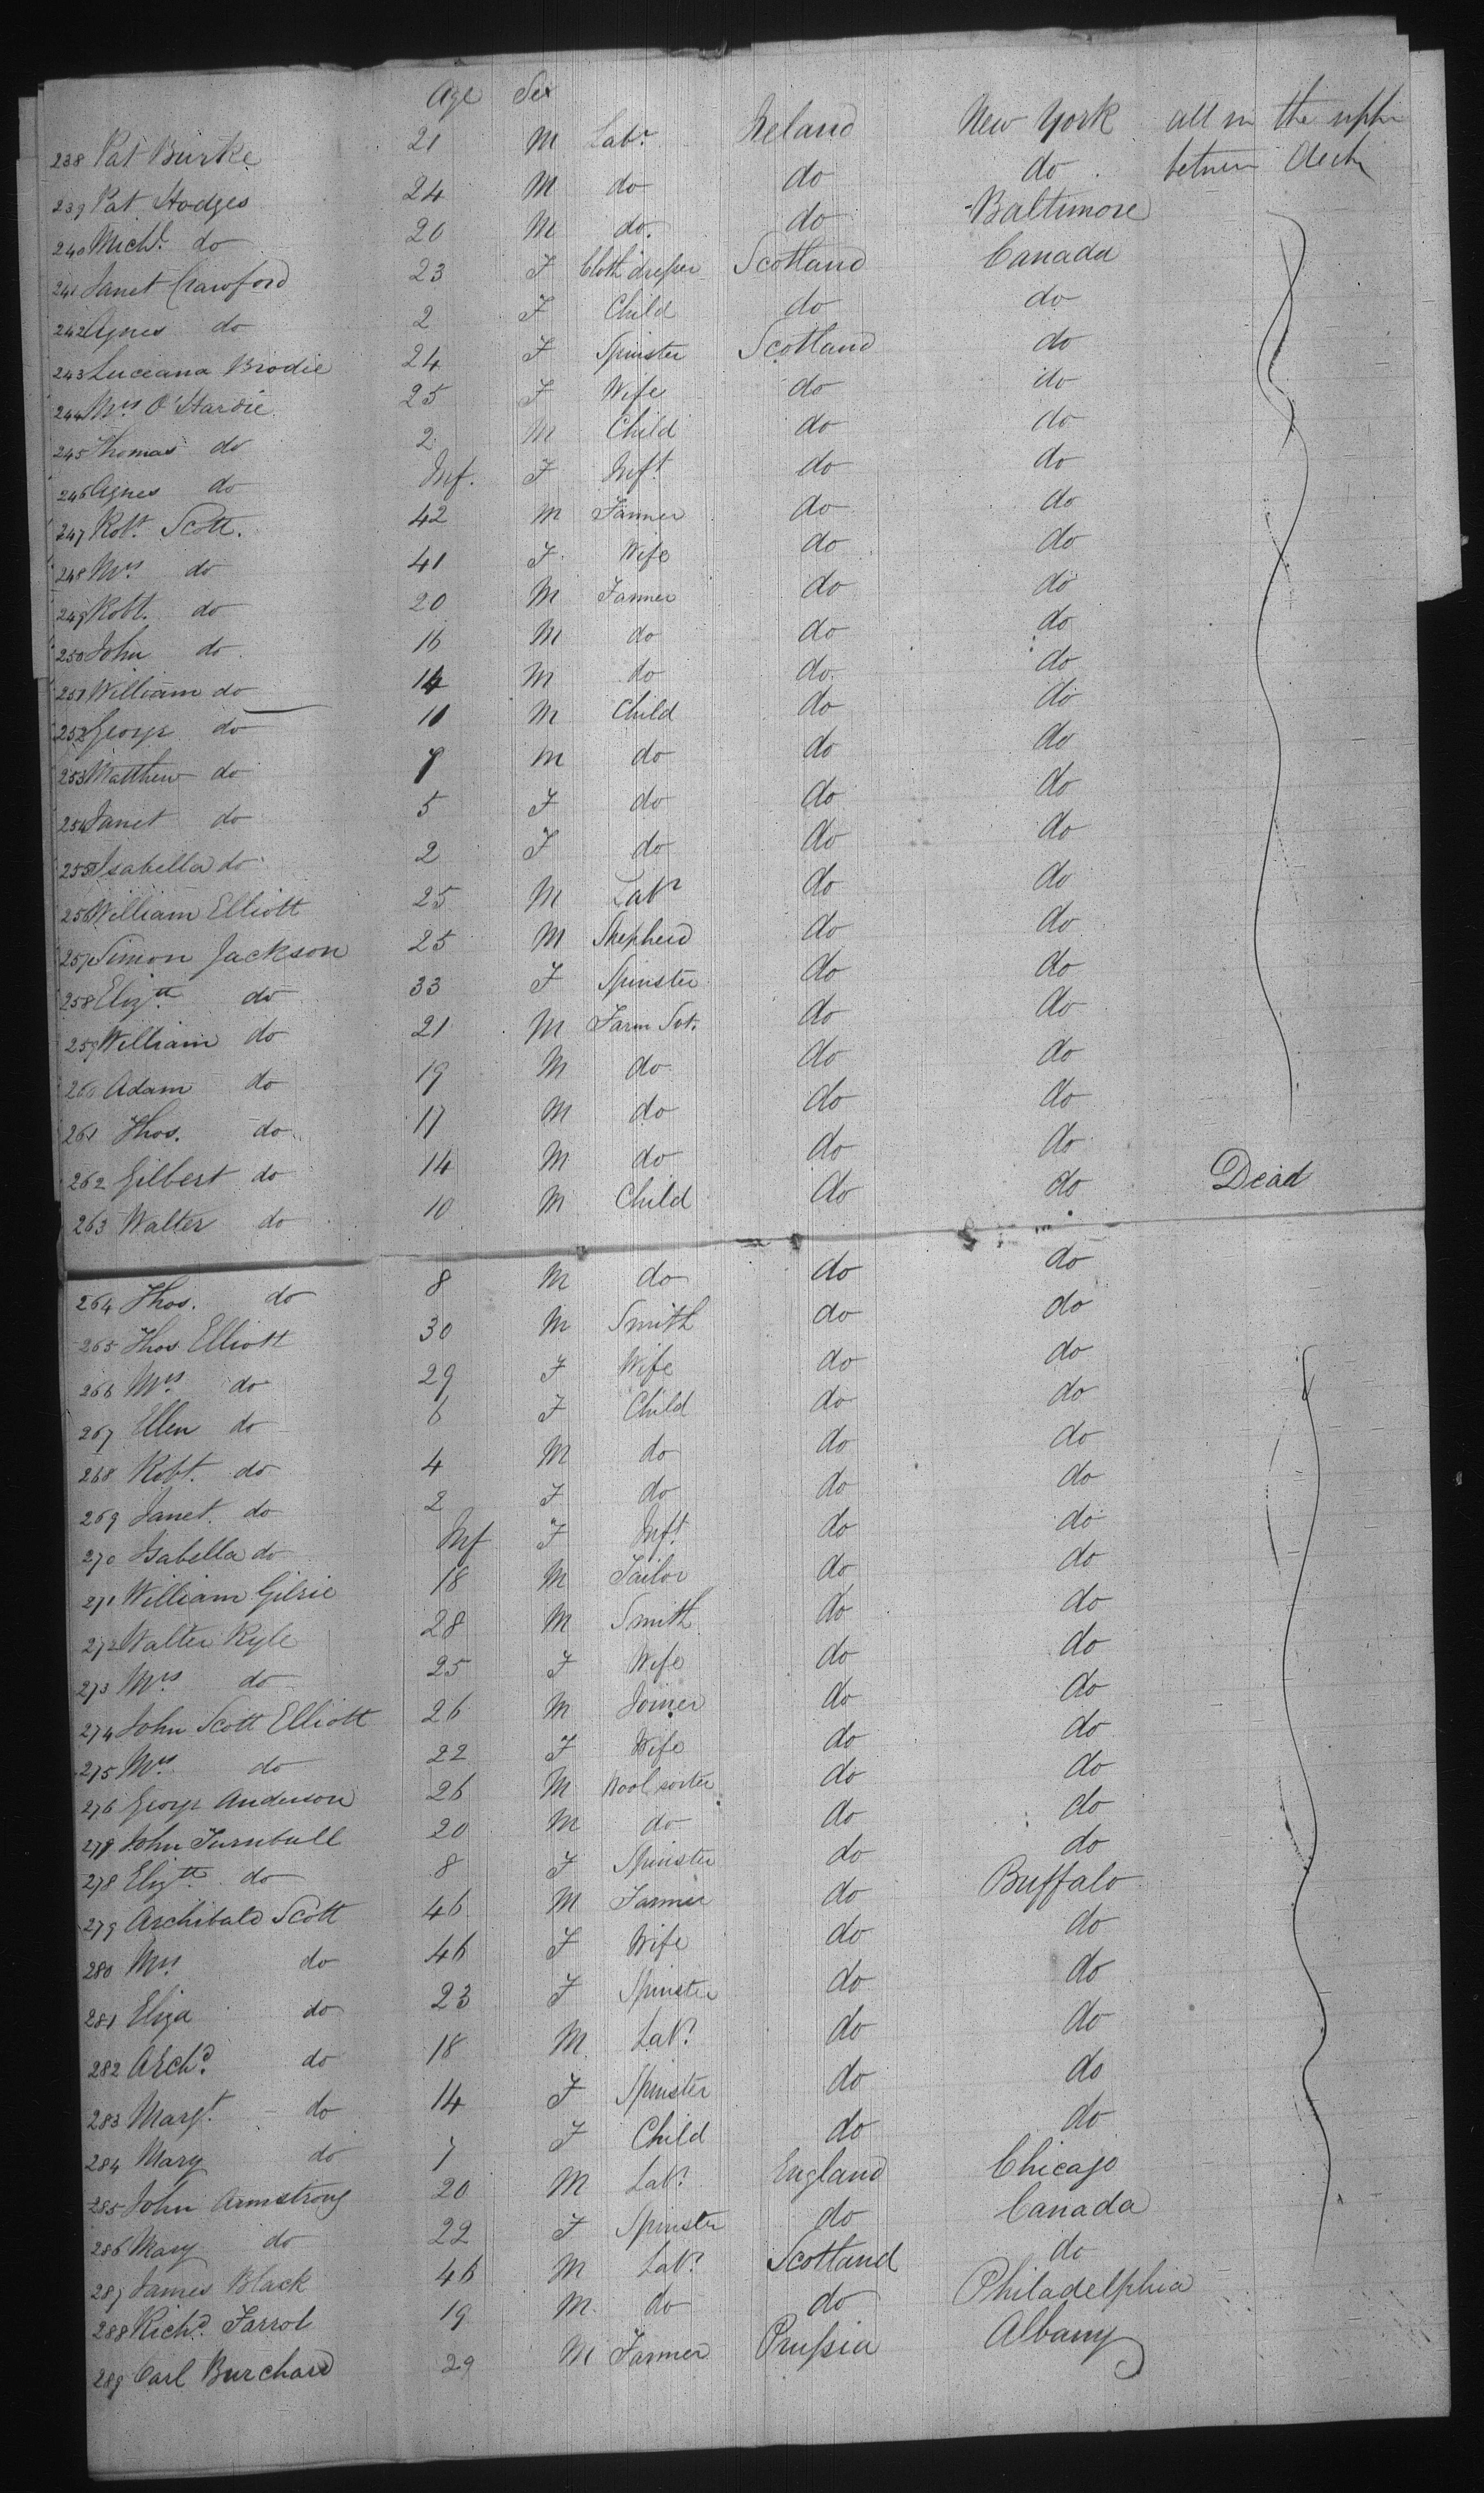 Age Sex
238 Pat Burke 21 M Labr. Ireland New York all in the upper
239 Pat Hodges 24 M do do do between deck
240 Michl. do 20 M do. do Baltimore
241 Janet Crawford 23 F Cloth dresser Scotland Canada
242 Agnes do 2 F Child do do
243 Luceana Brodie 24 F Spinster Scotland do
244 Mrs. O'Hardie 25 F Wife do do
245 Thomas do 2 M Child do do
246 Agnes do Inf. F Inft do do
247 Robt. Scott. 42 M Farmer do do
248 Mrs. do 41 F Wife do do
249 Robt. do 20 M Farmer do do
250 John do 16 M do do do
251 William do 14 M do do do
252 George do 11 M Child do do
253 Matthew do 9 M do do do
254 Janet do 5 F do do do
255 Isabella do 2 F do do do
256 William Elliott 25 M Labr do do
257 Simon Jackson 25 M Shepherd do do
258 Elizth do 33 F Spinster do do
259 William do 21 M Farm Svt. do do
260 Adam do 19 M do do do
261 Thos. do 17 M do do do
262 Gilbert do 14 M do do do
263 Walter do 10 M Child do do Dead
264 Thos. do 8 M do do do
265 Thos Elliott 30 M Smith do do
266 Mrs. do 29 F Wife do do
267 Ellen do 6 F Child do do
268 Robt. do 4 M do do do
269 Janet. do 2 F do do do
270 Isabella do Inf F Inft. do do
271 William Gilrie 18 M Tailor do do
272 Walter Kyle 28 M Smith do do
273 Mrs. do 25 F Wife do do
274 John Scott Elliott 26 M Joiner do do
275 Mrs. do 22 F Wife do do
276 George Anderson 26 M Wool sorter do do
278 John Turnbull 20 M do do do
278 Elizth do 8 F Spinster do do
279 Archibald Scott 46 M Farmer do Buffalo
280 Mrs. do 46 F Wife do do
281 Eliza do 23 F Spinster do do
282 Archd. do 18 M Labr. do do
283 Margt. do 14 F Spinster do do
284 Mary do 7 F Child do do
285 John Armstrong 20 M Labr. England Chicago
286 Mary do 22 F Spinster do Canada
287 James Black 46 M Labr. Scotland do
288 Richd. Farrol 19 M do do Philadelphia
289 Carl Burchard 29 M Farmer Prussia Albany